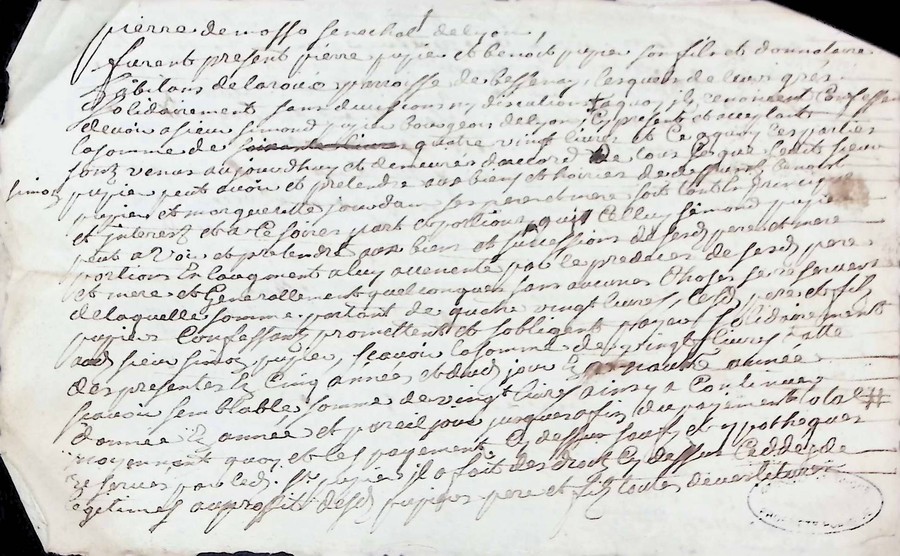 pierre de mosso senechal de lyon,
furent present pierre pupier et benoit pupier son fils et donnataire
habitans de la parroisse de bessenay, lesquels de leur gré
solidairement sans division ny discution a quoy ils renoncent confessent
devoir a sieur simond pupier bourgeois de lyon, cy present et acceptant
la somme de quatre vingt livres et ce a quoy les parties
sont venus aujourdhuy et demeures daccord de tous ce que ledit sieur
simon
pupier peut avoir et pretendre aux biens et hoiries de deffunt benoit
pupier et marguerite jourdan ses pere et mere soit tant en principal
et interest et accesoires part et portions qui luy simond pupier
peut avoir et pretendre aux biens et successions de sesd pere et mere
portions en augment a luy avenente par le predeces de sesd pere
et mere et generallement quelconques sans aucunes choses se reserver
de laquelle somme partant de quatre vingt livres, lesd pere et fils
pupier confessant promettent et sobligent payer solidairement
aud sieur simon pupier, scavoir la somme de vingt livres a
des presentes en cinq années et dud jour en une année
scavoir semblable somme de vingt livres ainsy a continuer
dannée en année et pareil jour jusques a fin du payement total #
moyennant quoy et les payements cy dessus sauf et ypotheques
reserves par led. sr pupier il a fait des droits cy dessus cedded de
legitimes au proffit desd pupier pere et fils toutes devestitures